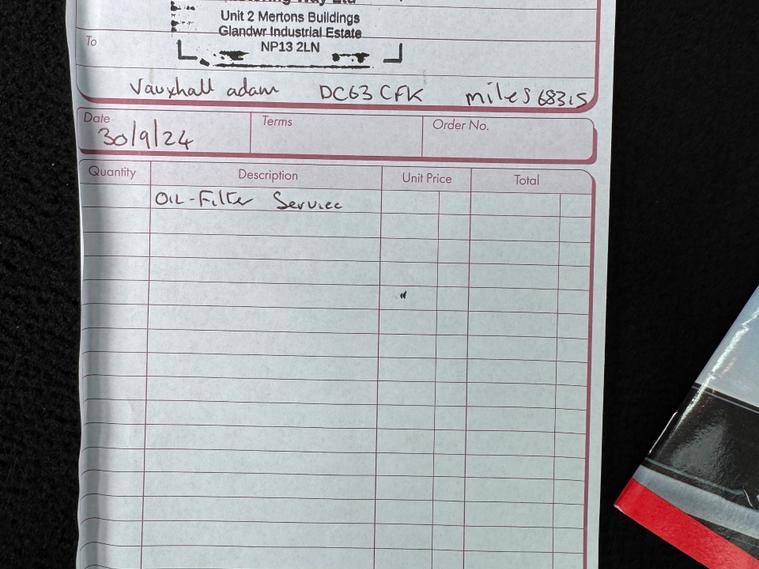 Way Ltd
Unit 2 Mertons Buildings
Glandwr Industrial Estate
NP13 2LN
To
Vauxhall adam DC63 CFK miles 68315
Date Terms Order No.
30/9/24
Quantity Description Unit Price Total
OIL-Filter Service